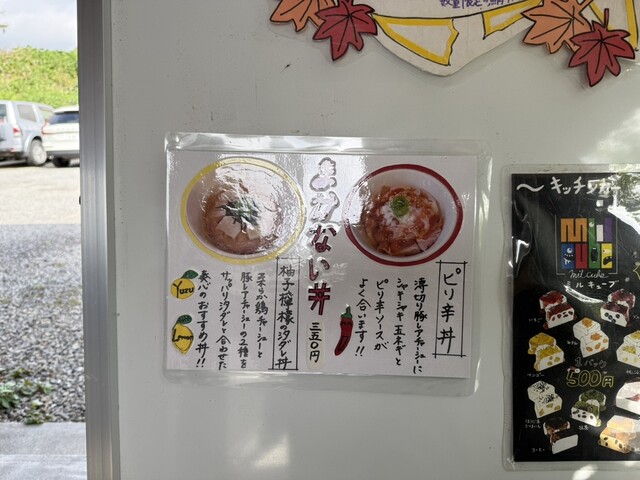 ピリ辛丼
薄切り豚レアチャーシューに
シャキシャキ玉ネギと
ピリ辛ソースが
よく合います!!
まかない丼
三五〇円
柚子檸檬の汐ダレ丼
柔らか鶏チャーシューと
豚レアチャーシューの2種を
サッパリ汐ダレと合わせた
奏心のおすすめ丼!!
Yuzu
Lemon
～キッチンカー
mil cube
ミルキューブ
500円